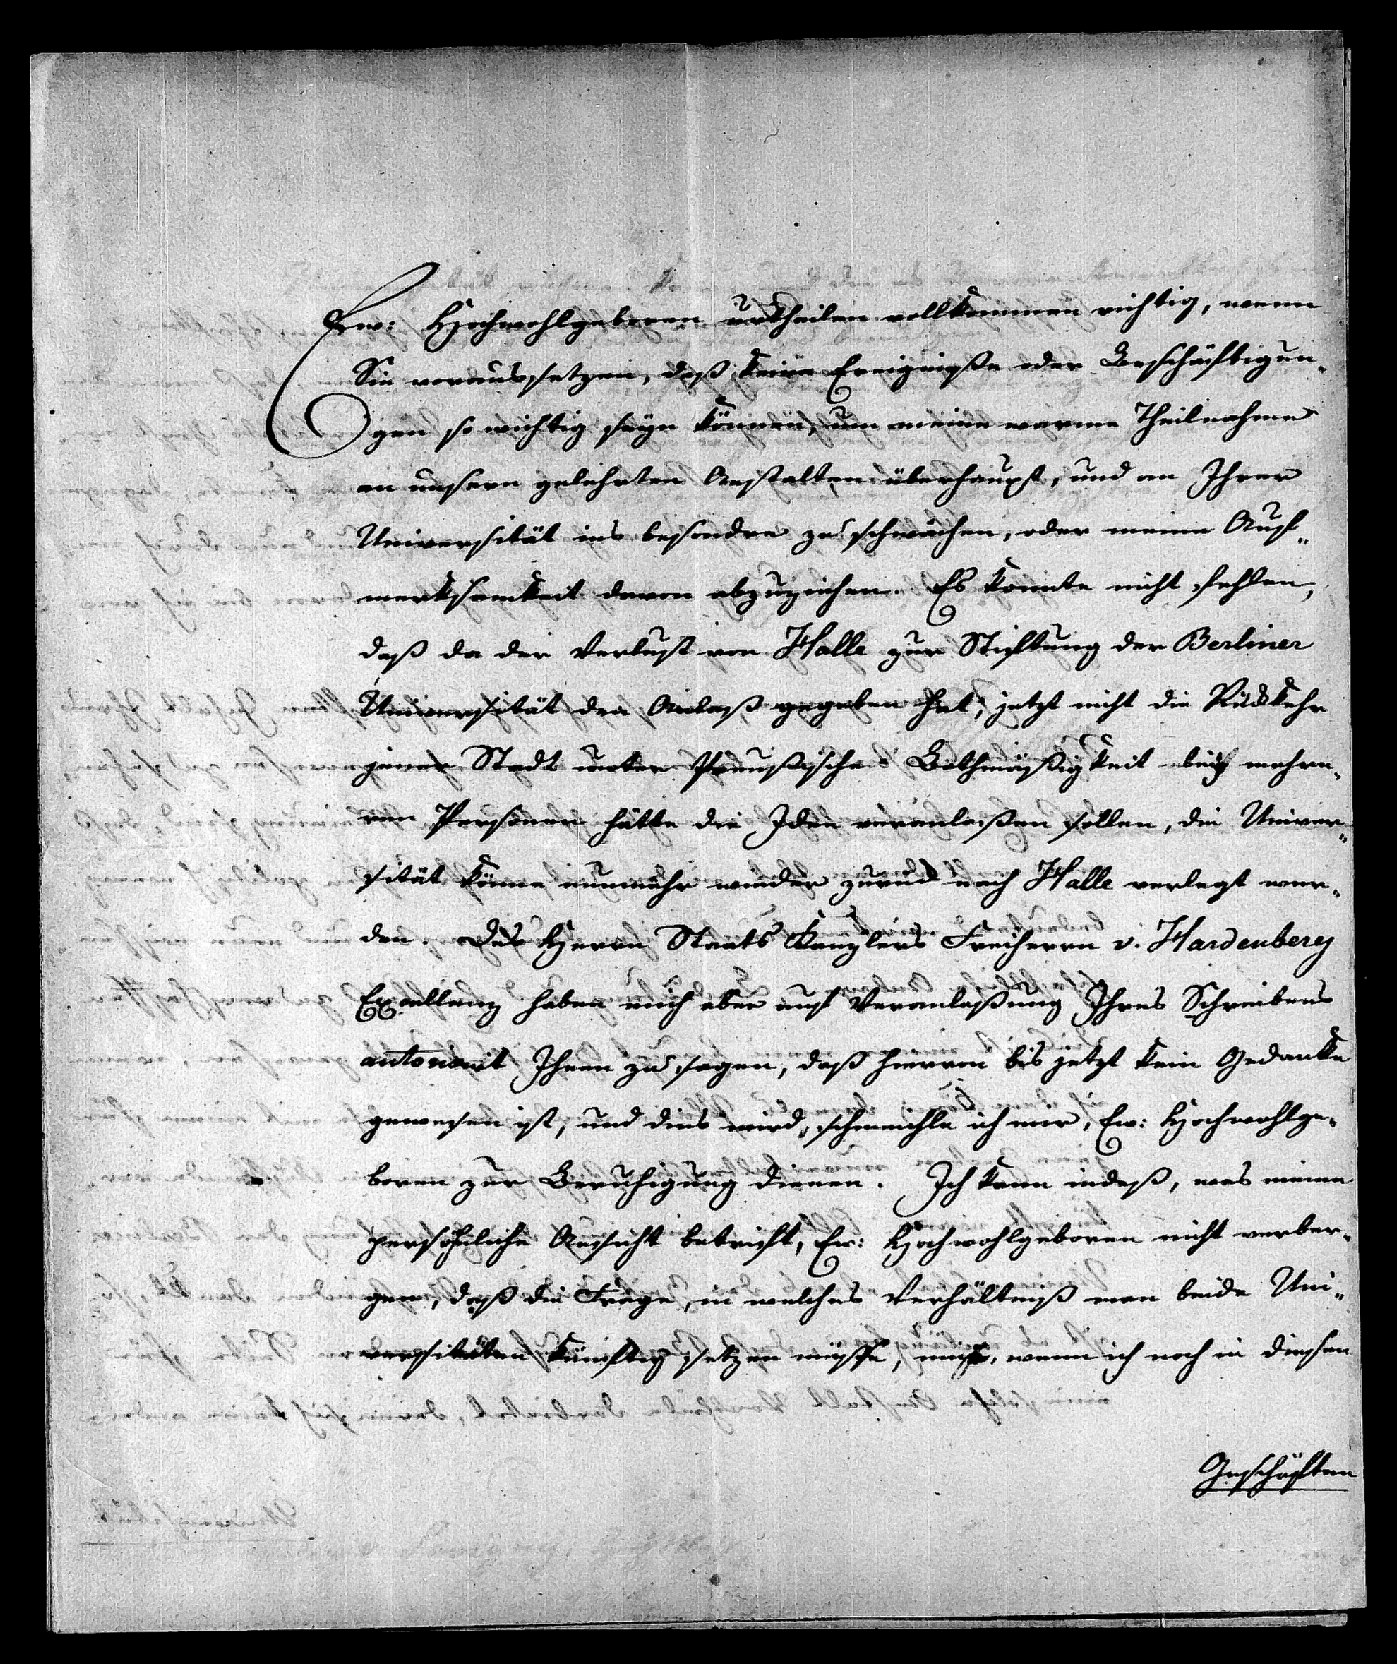 Ew: Hochwohlgeboren urtheilen vollkommen richtig, wenn
Sie voraussetzen, daß keine Ereigniße oder Beschäftigun-
gen so wichtig seyn können, um meine warme Theilnahme
an unsern gelehrten Anstalten überhaupt, und an Ihrer
Universität ins besondre zu schwächen, oder meine Auf-
merksamkeit davon abzuziehen. Es konnte nicht fehlen,
daß da der Verlust von Halle zur Stiftung der Berliner
Universität den Anlaß gegeben hat, jetzt nicht die Rückkehr
jener Stadt unter Preußische Bothmäßigkeit bey mehre-
ren Personen hätte die Idee veranlaßen sollen, die Univer-
sität könne nunmehr wieder zurück nach Halle verlegt wer-
den. Des Herrn Staats Kanzlers Freiherrn v. Hardenberg
Excellenz haben mich aber auf Veranlaßung Ihres Schreibens
autorisirt Ihnen zu sagen, daß hiervon bis jetzt kein Gedanke
gewesen ist, und dies wird, schmeichle ich mir, Ew: Hochwohlge-
boren zur Beruhigung dienen. Ich kann indeß, was meine
persönliche Ansicht betrift, Ew: Hochwohlgeboren nicht verber-
gen, daß die Frage, in welches Verhältniß man beide Uni-
versitäten künftig setzen müsse, mich, wenn ich noch in diesen
Geschäften